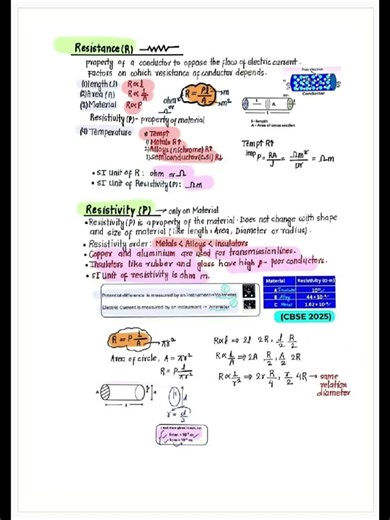 Resistance (R)
property of a conductor to oppose the flow of electric current.
Factors on which resistance of conductor depends.
(1) length (l) R∝l
(2) Area (A) R∝1/A
(3) Material R∝ρ
R = ρl/A → m
→ m²
ohm or Ω
Conductor
Resistivity (ρ) - property of material
l - length
A - Area of cross section
(4) Temperature • Temp↑
1) Metals R↑
2) Alloys (nichrome) R↑
3) semiconductor (c,si) R↓
Temp↑ R↑
imp ρ = RA/l = Ωm²/m = Ωm
• SI Unit of R : ohm or Ω
• SI Unit of Resistivity (ρ) : Ωm
Resistivity (ρ) → only on Material
• Resistivity (ρ) is a property of the material. Does not change with shape
and size of material (like length, Area, Diameter or radius).
• Resistivity order: Metals < Alloys < insulators
• Copper and aluminium are used for transmission lines.
• Insulators like rubber and glass have high ρ - poor conductors.
• SI Unit of resistivity is ohm m.
Potential difference is measured by an instrument → Voltmeter
Electric Current is measured by an instrument → Ammeter
Material Resistivity (Ω m)
A Insulator
B Alloy
C Metal
(CBSE 2025)
R = ρ l/A → πr²
Area of circle, A = πr²
R = ρ l/πr²
R∝l ⇒ 2l 2R, l/2 R/2
R∝1/A ⇒ 2A R/2, A/2 2R
R∝1/r² ⇒ 2r R/4, r/2 4R → same
relation
diameter
r = d/2